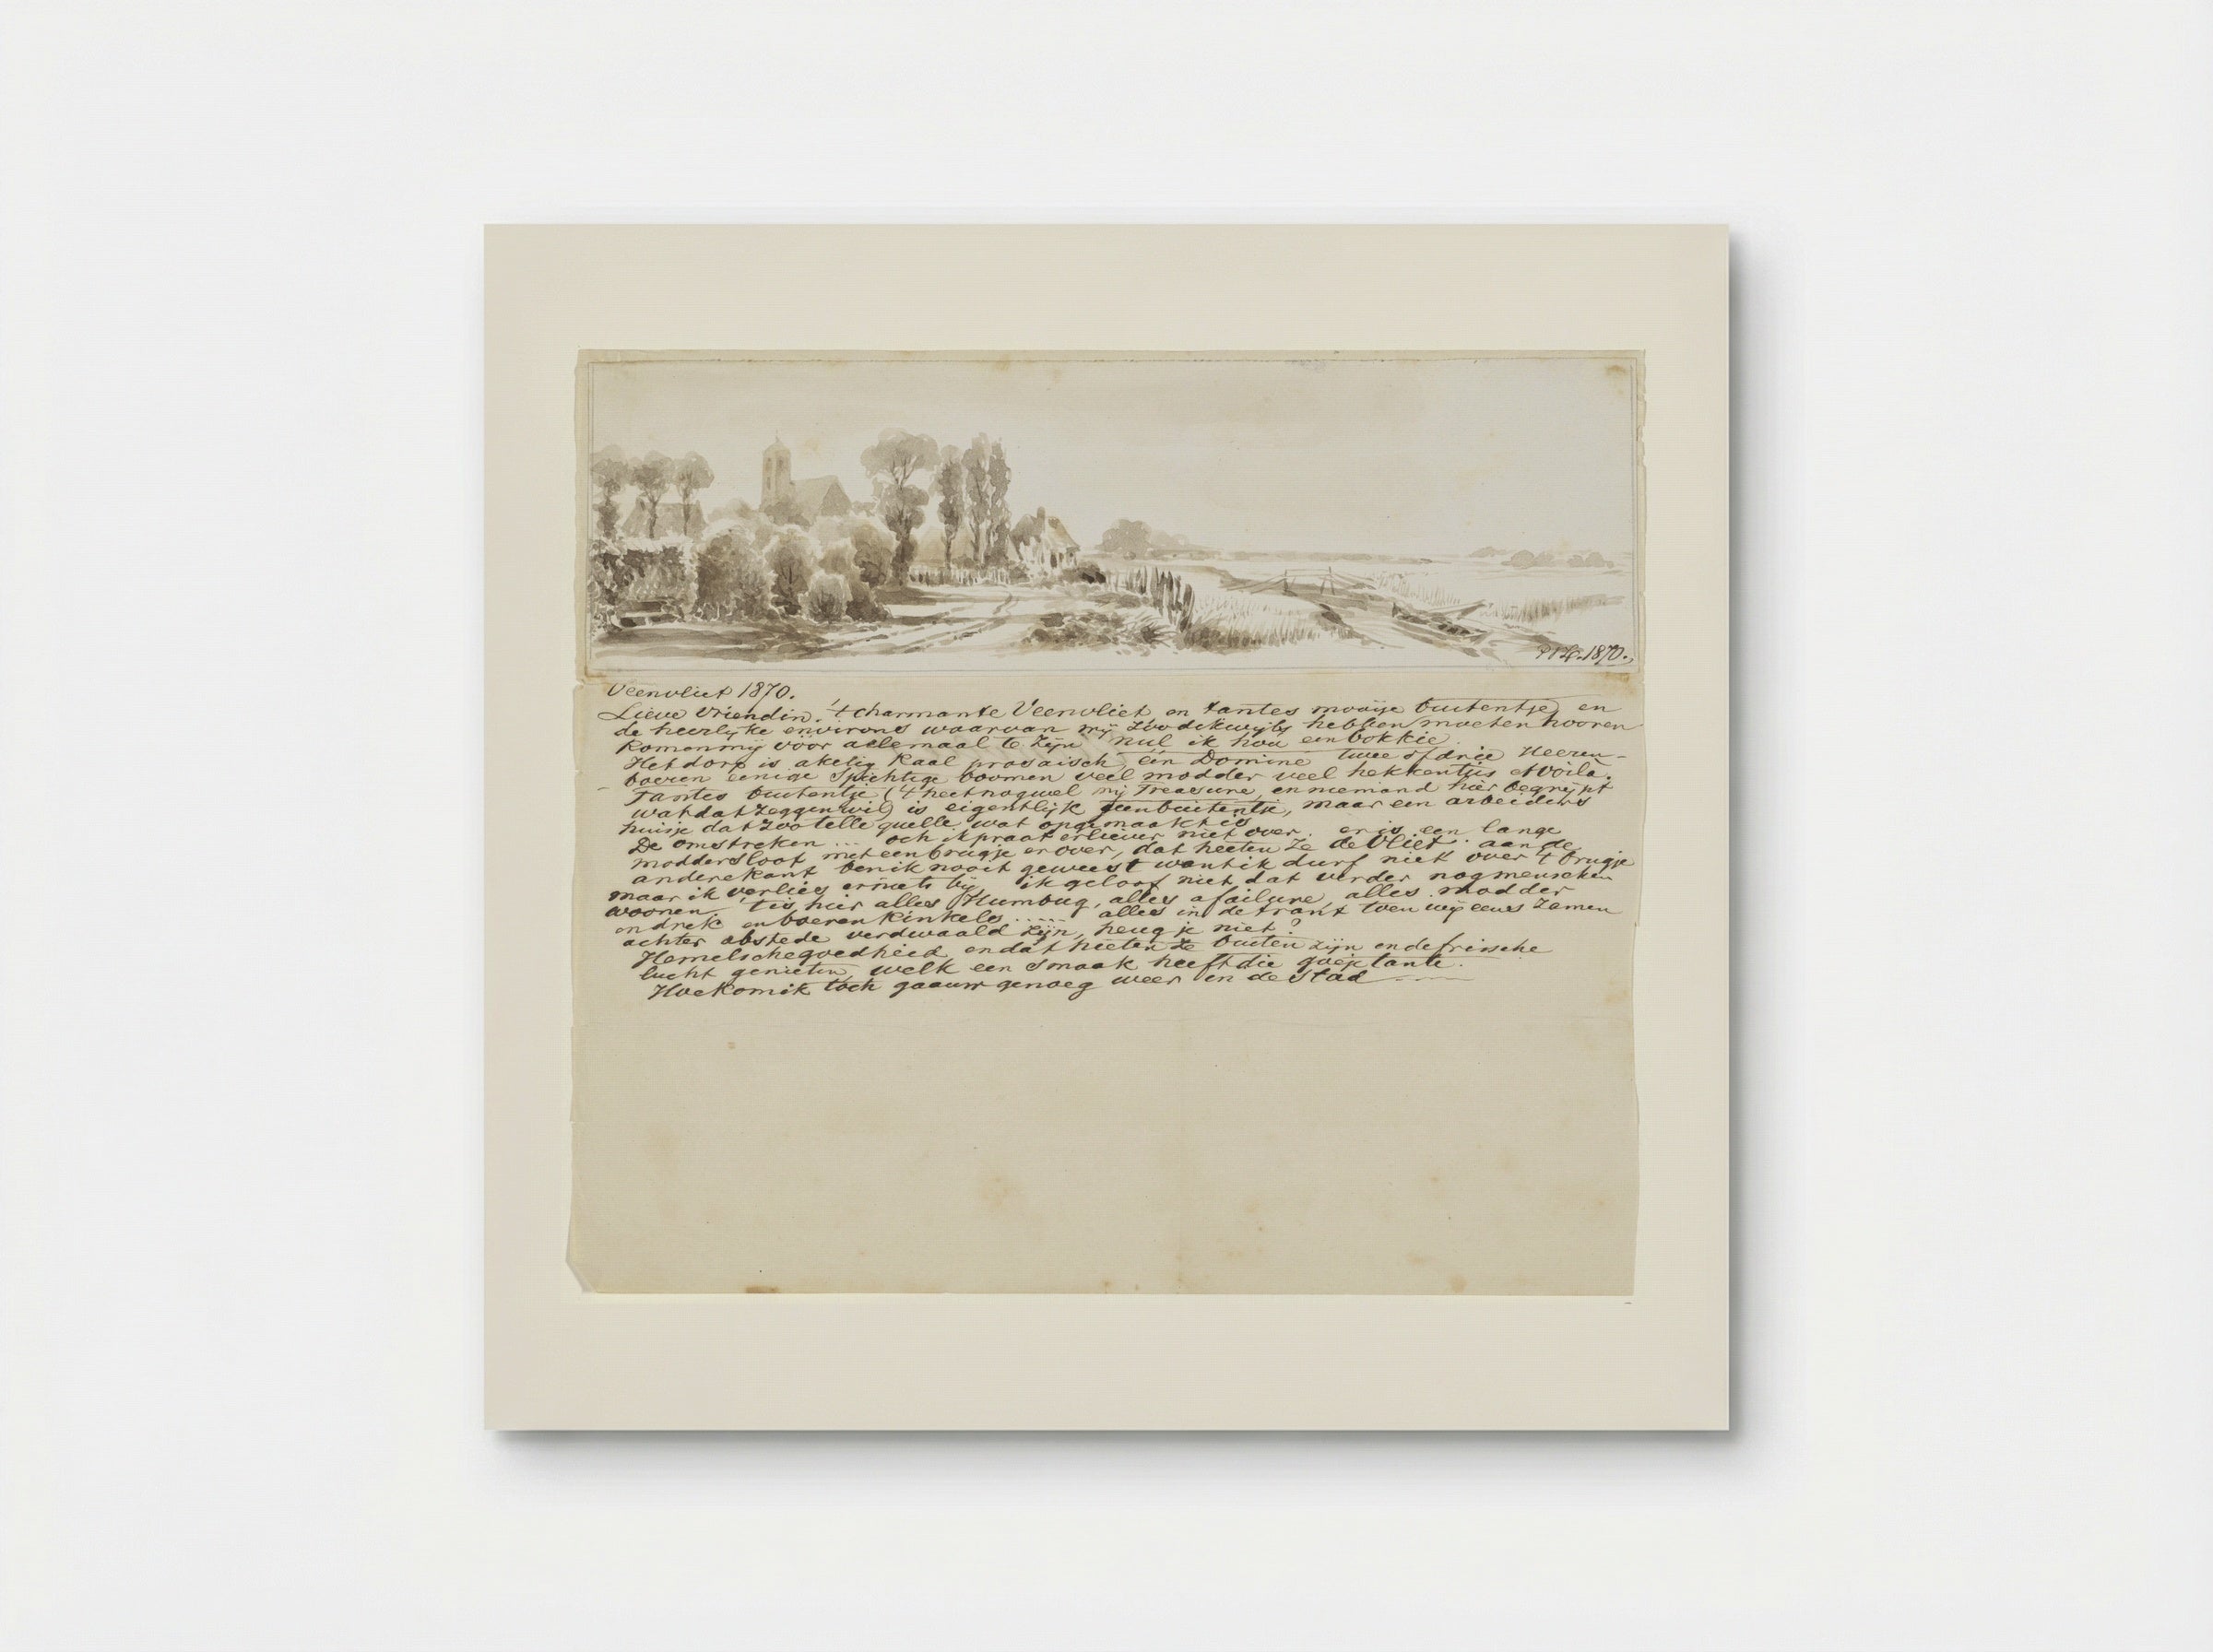 P1H. 1870.
Veenvliet 1870.
Lieve Vriendin. 't charmante Veenvliet en tantes mooije buitentje, en
de heerlijke environs waarvan wij zoo dikwijls hebben moeten hooren
komen mij voor allemaal te zijn nul ik hou een bokkie
Het dorp is akelig kaal prosaisch, een Domine twee of drie Heeren-
boeren eenige spichtige boomen veel modder veel hekkentjes et voilà.
Tantes buitentje ('t heet nogwel mij Treasure, en niemand hier begrijpt
wat dat zeggen wil) is eigentlijk geen buitentje, maar een arbeiders
huisje dat zoo telle quelle wat opgemaakt is
De omstreken ... och ik praat er liever niet over. er is een lange
moddersloot met een brugje er over, dat heeten ze de Vliet. aan de
anderekant ben ik nooit geweest want ik durf niet over 't brugje
maar ik verlies er niets bij, ik geloof niet dat verder nog menschen
woonen. tis hier alles Humbug, alles a failure, alles modder
en drek en boeren kinkels ..... alles in de trant toen wij eens zamen
achter abstede verdwaald zijn, heug je niet?
Hemelsche goedheid en dat hieten ze buiten zijn en de frissche
lucht genieten, welk een smaak heeft die goeje tante.
Hoe kom ik toch gaauw genoeg weer in de stad